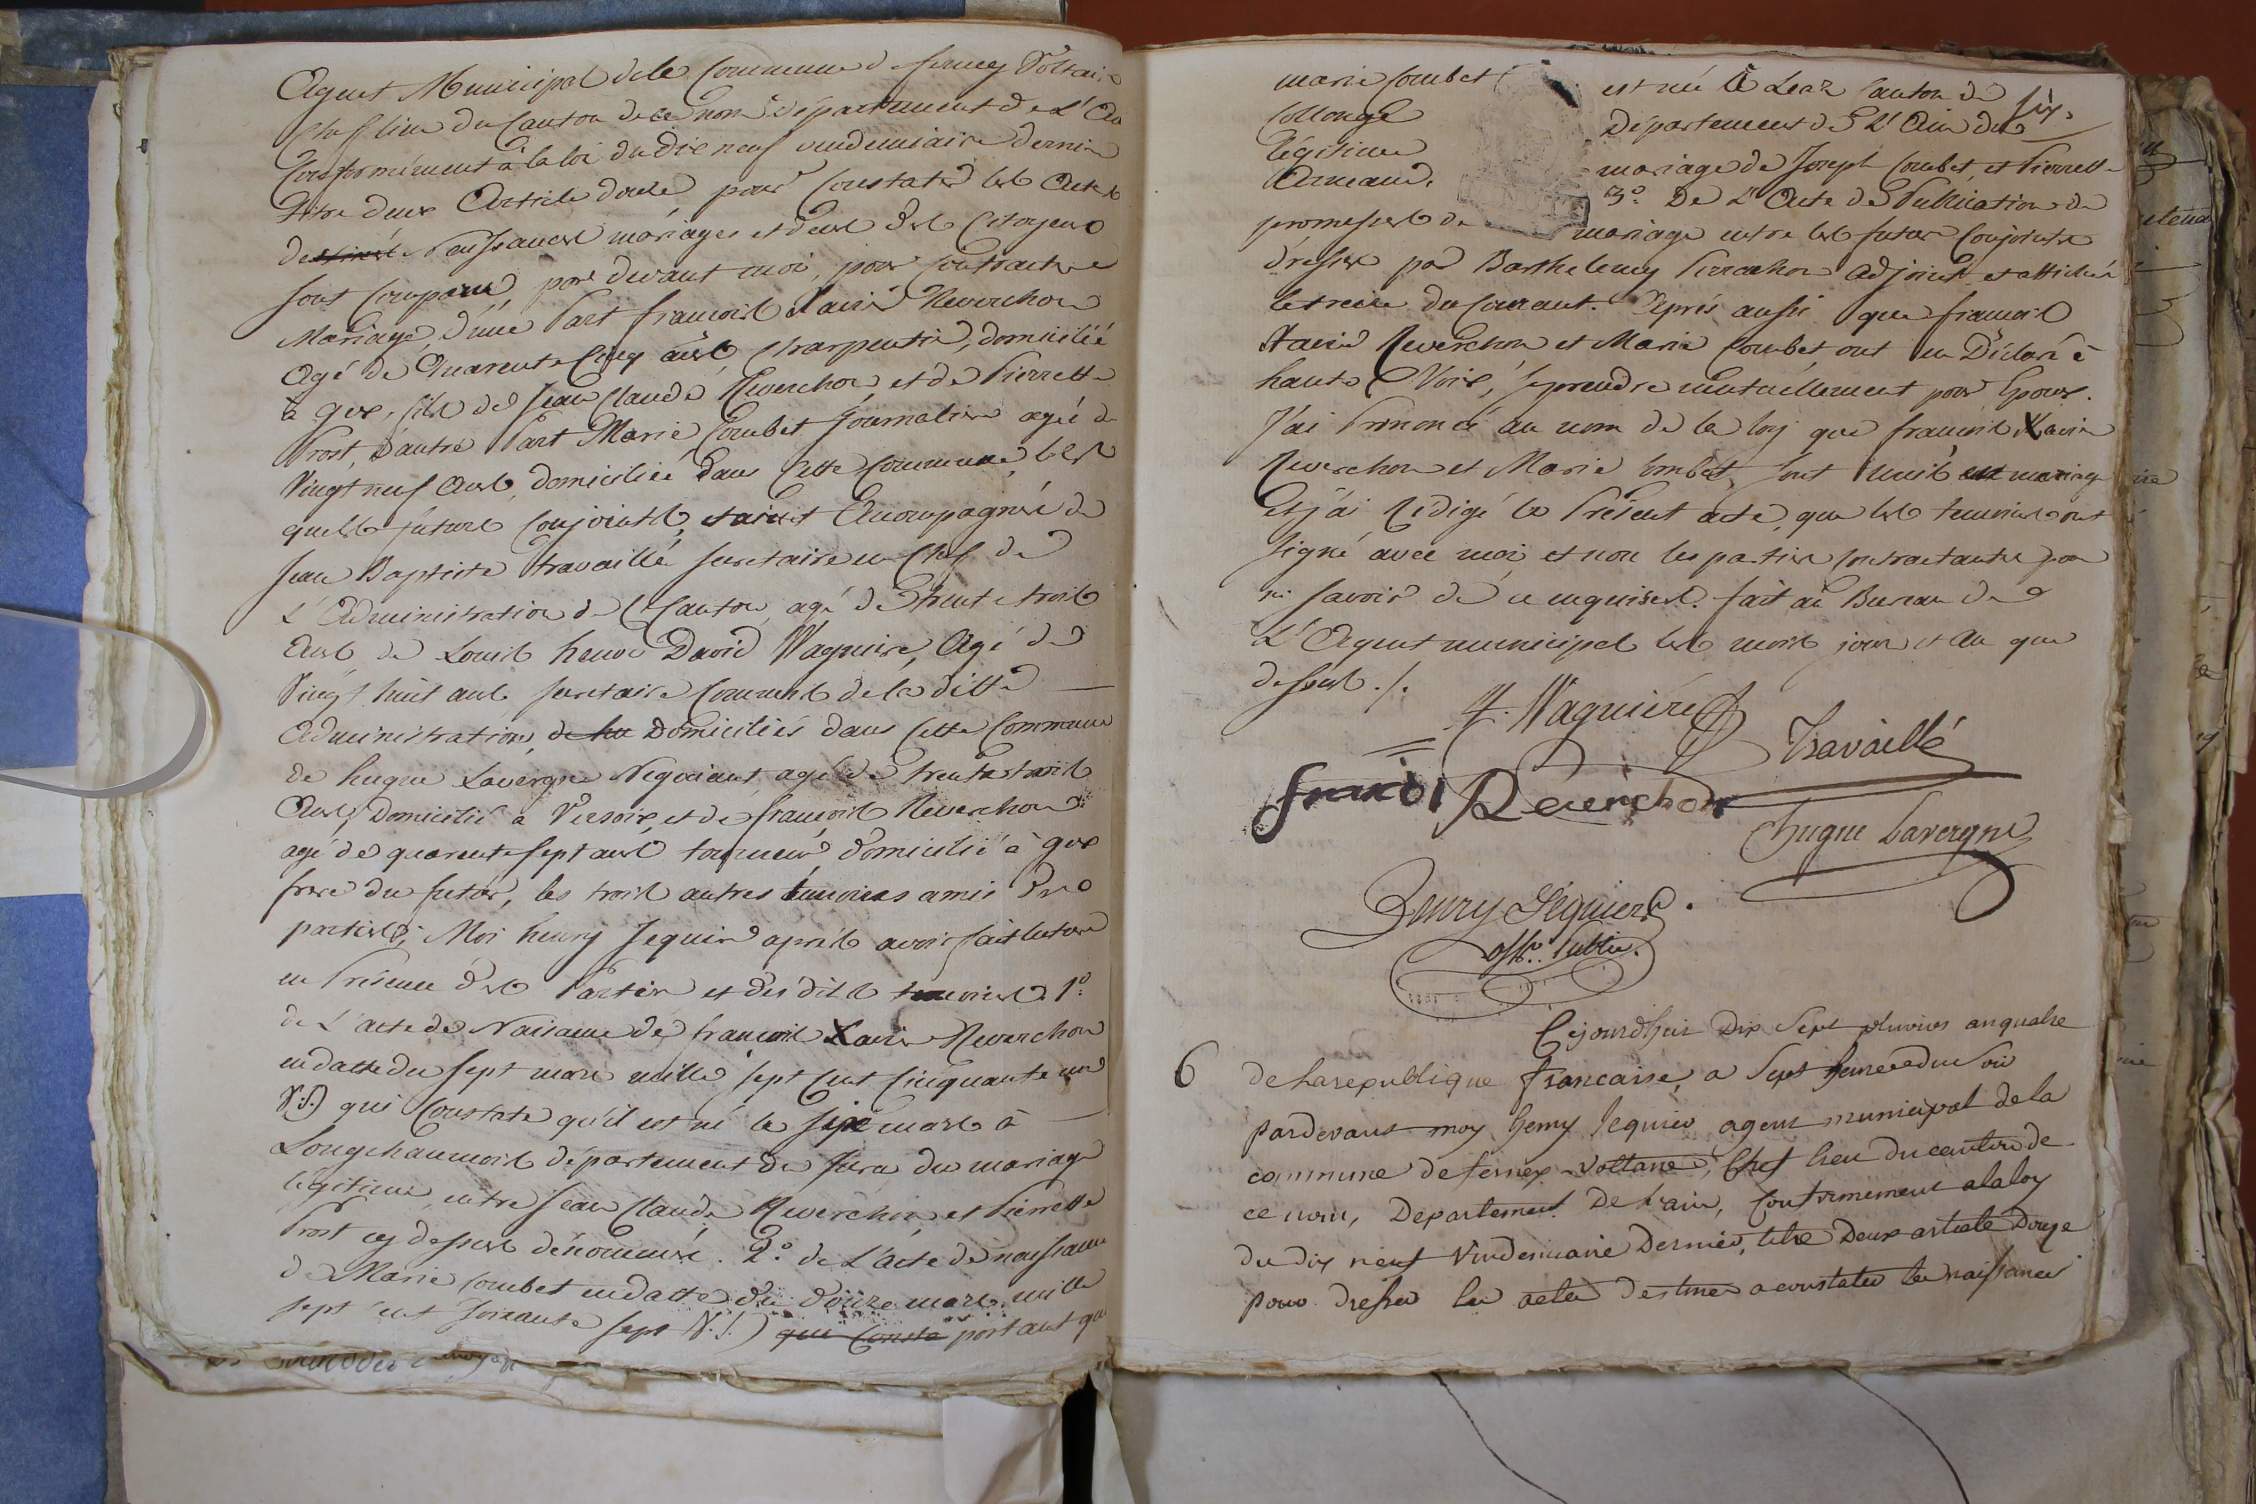 Agent Municipal de la Commune de ferney Voltaire
Chef lieu du Canton de ce nom département de L'Ain
Conformément à la loi du dix neuf vendemiaire dernier
titre deux Article douze pour Constater les Actes
de Naissances mariages et deces des Citoyens
sont Comparus, par devant moi, pour Contracter
Mariage, d'une Part francois Xavier Reverchon
Agé de Quarente Cinq ans, Charpentier, domicilié
à gex, fils de Jean Claude Reverchon, et de Pierrette
Prost, D'autre Part Marie Combet Journaliere agée de
Vingt neuf Ans, domiciliée dans Cette Commune, les
quels futurs Conjoints, etaient Accompagnés de
Jean Baptiste Travaillé secretaire en Chef de
L'Administration de Ce Canton, agé de trente trois
Ans de Louis henri David Wagnière, Agé de
Vingt huit ans secretaire Commis de la ditte
Administration, Domiciliés dans Cette Commune
de hugue Lavergne Negociant, agé de trente trois
Ans, Domicilié a Versoix, et de francois Reverchon
agé de quarente sept ans tourneur domicilié à gex
frere du futur, les trois autres temoins amis des
parties; Moi henry Sequier après avoir fait lecture
en Présence des Parties et des dits temoins. 1º:
de L'acte de Naissance de francois Xavier Reverchon
en datte du sept mars mille sept Cent Cinquante un
(V.S.) qui Constate qu'il est né le six mars à
Longchaumois département du Jura du mariage
légitime, entre Jean Claude Reverchon et Pierrette
Prost cy dessus dénommés. 2º. de L'acte de naissance
de Marie Combet en datte du douze mars mille
sept cent soixante sept V.S.) que Consta portant que
marie Combet est née à Leaz Canton de
six.
Collonge Département de L'Ain du
légitime mariage de Joseph Combet, et Pierrette
Armand. 3º. De L'Acte de Publication de
promesses de mariage entre les futurs Conjoints
dressé par Barthelemy Perrachon Adjoint et affiché
le treize du Courant. Après aussi que francois
Xavier Reverchon et Marie Combet, ont eu Déclaré à
haute Voix, se prendre mutuellement pour Epoux.
J'ai Prononcé au nom de la loy que francois Xavier
Reverchon et Marie Combet, sont unis en mariage
Et j'ai Rédigé le Présent acte, que les temoins ont
signé avec moi et non les parties Contractantes pour
ne savoir de ce enquises. fait au Bureau de
L'Agent municipal les mois jour et An que
dessus ./.
H. Wagnière
Travaillé
francois Reverchon
hugue Lavergne
Henry Sequier
offer. Public.
Cejourdhui Dix Sept pluvios an quatre
6 de la republique francaise, a Sept heures du soir
pardevant moy henry Sequier agent municipal de la
commune de ferney-voltaire, Chef lieu du canton de
ce nom, Departement De l'ain, Conformement a la loy
du dix neuf Vendemiaire Dernier, titre Deux article Douze
pour dresser les actes destinés a constater les naissances